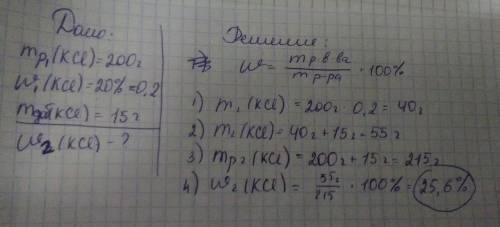 Дано:
mр₁(KCl)=200г
ω₁(KCl)=20%=0,2
m (KCl)= 15г
ω₂(KCl)-?
Решение:
ω= m р.в-ва / m р-ра · 100%
1) m₁(KCl) = 200г · 0,2 = 40г
2) m₂(KCl)= 40г + 15г = 55г
3) mр₂(KCl) = 200г + 15г = 215г
4) ω₂(KCl) = 55г / 215 · 100% = 25,6%